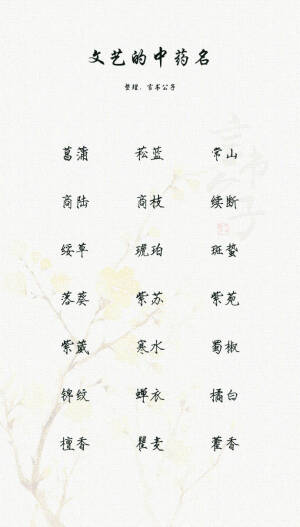 文艺的中药名
整理：言书公子
菖蒲 菘蓝 常山
商陆 商枝 续断
绥草 琥珀 斑蛰
落葵 紫苏 紫苑
紫葳 寒水 蜀椒
锦纹 蝉衣 橘白
檀香 瞿麦 藿香
言书公子